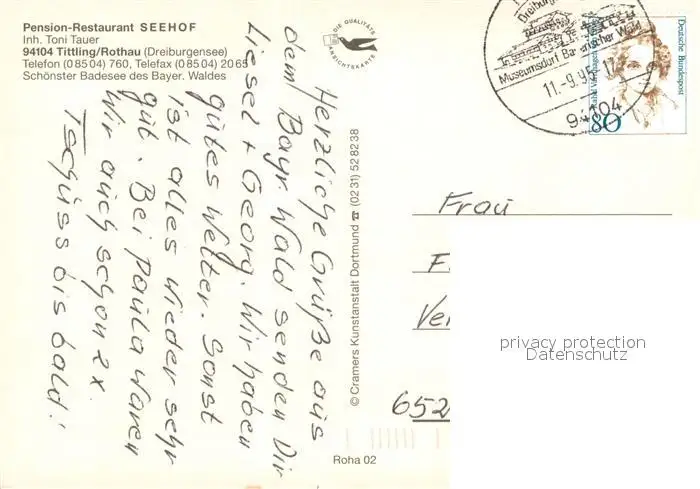 Pension-Restaurant SEEHOF
Inh. Toni Tauer
94104 Tittling/Rothau (Dreiburgensee)
Telefon (0 85 04) 760, Telefax (0 85 04) 20 65
Schönster Badesee des Bayer. Waldes
DIE QUALITÄTS
ANSICHTSKARTE
Herzliche Grüße aus
dem Bayr. Wald senden Dir
Liesel + Georg. Wir haben
gutes Wetter. Sonst
ist alles wieder sehr
gut. Bei Paula waren
Wir auch schon 2x.
Tschüss bis bald!
© Cramers Kunstanstalt Dortmund ☎ (02 31) 52 82 38
Roha 02
Museumsdorf Bayerischer Wald
11.-9.95.-17
94104
Deutsche Bundespost
80
Frau
652
privacy protection
Datenschutz